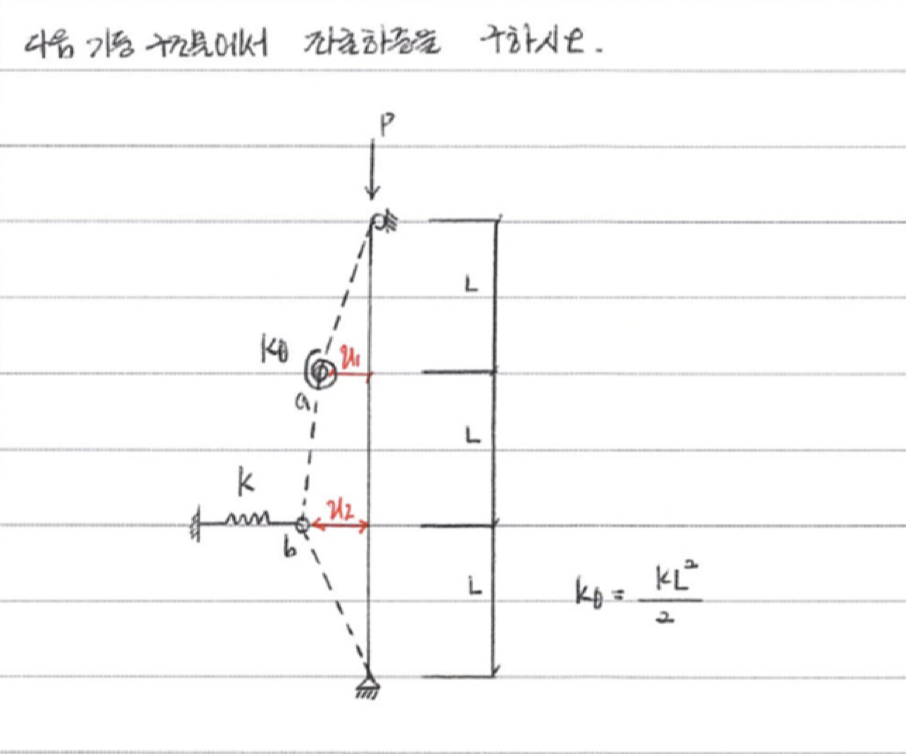 다음 기둥 구조물에서 좌굴하중을 구하시오.
P
L
kθ
u₁
a
L
k
u₂
b
L
kθ = kL²/2